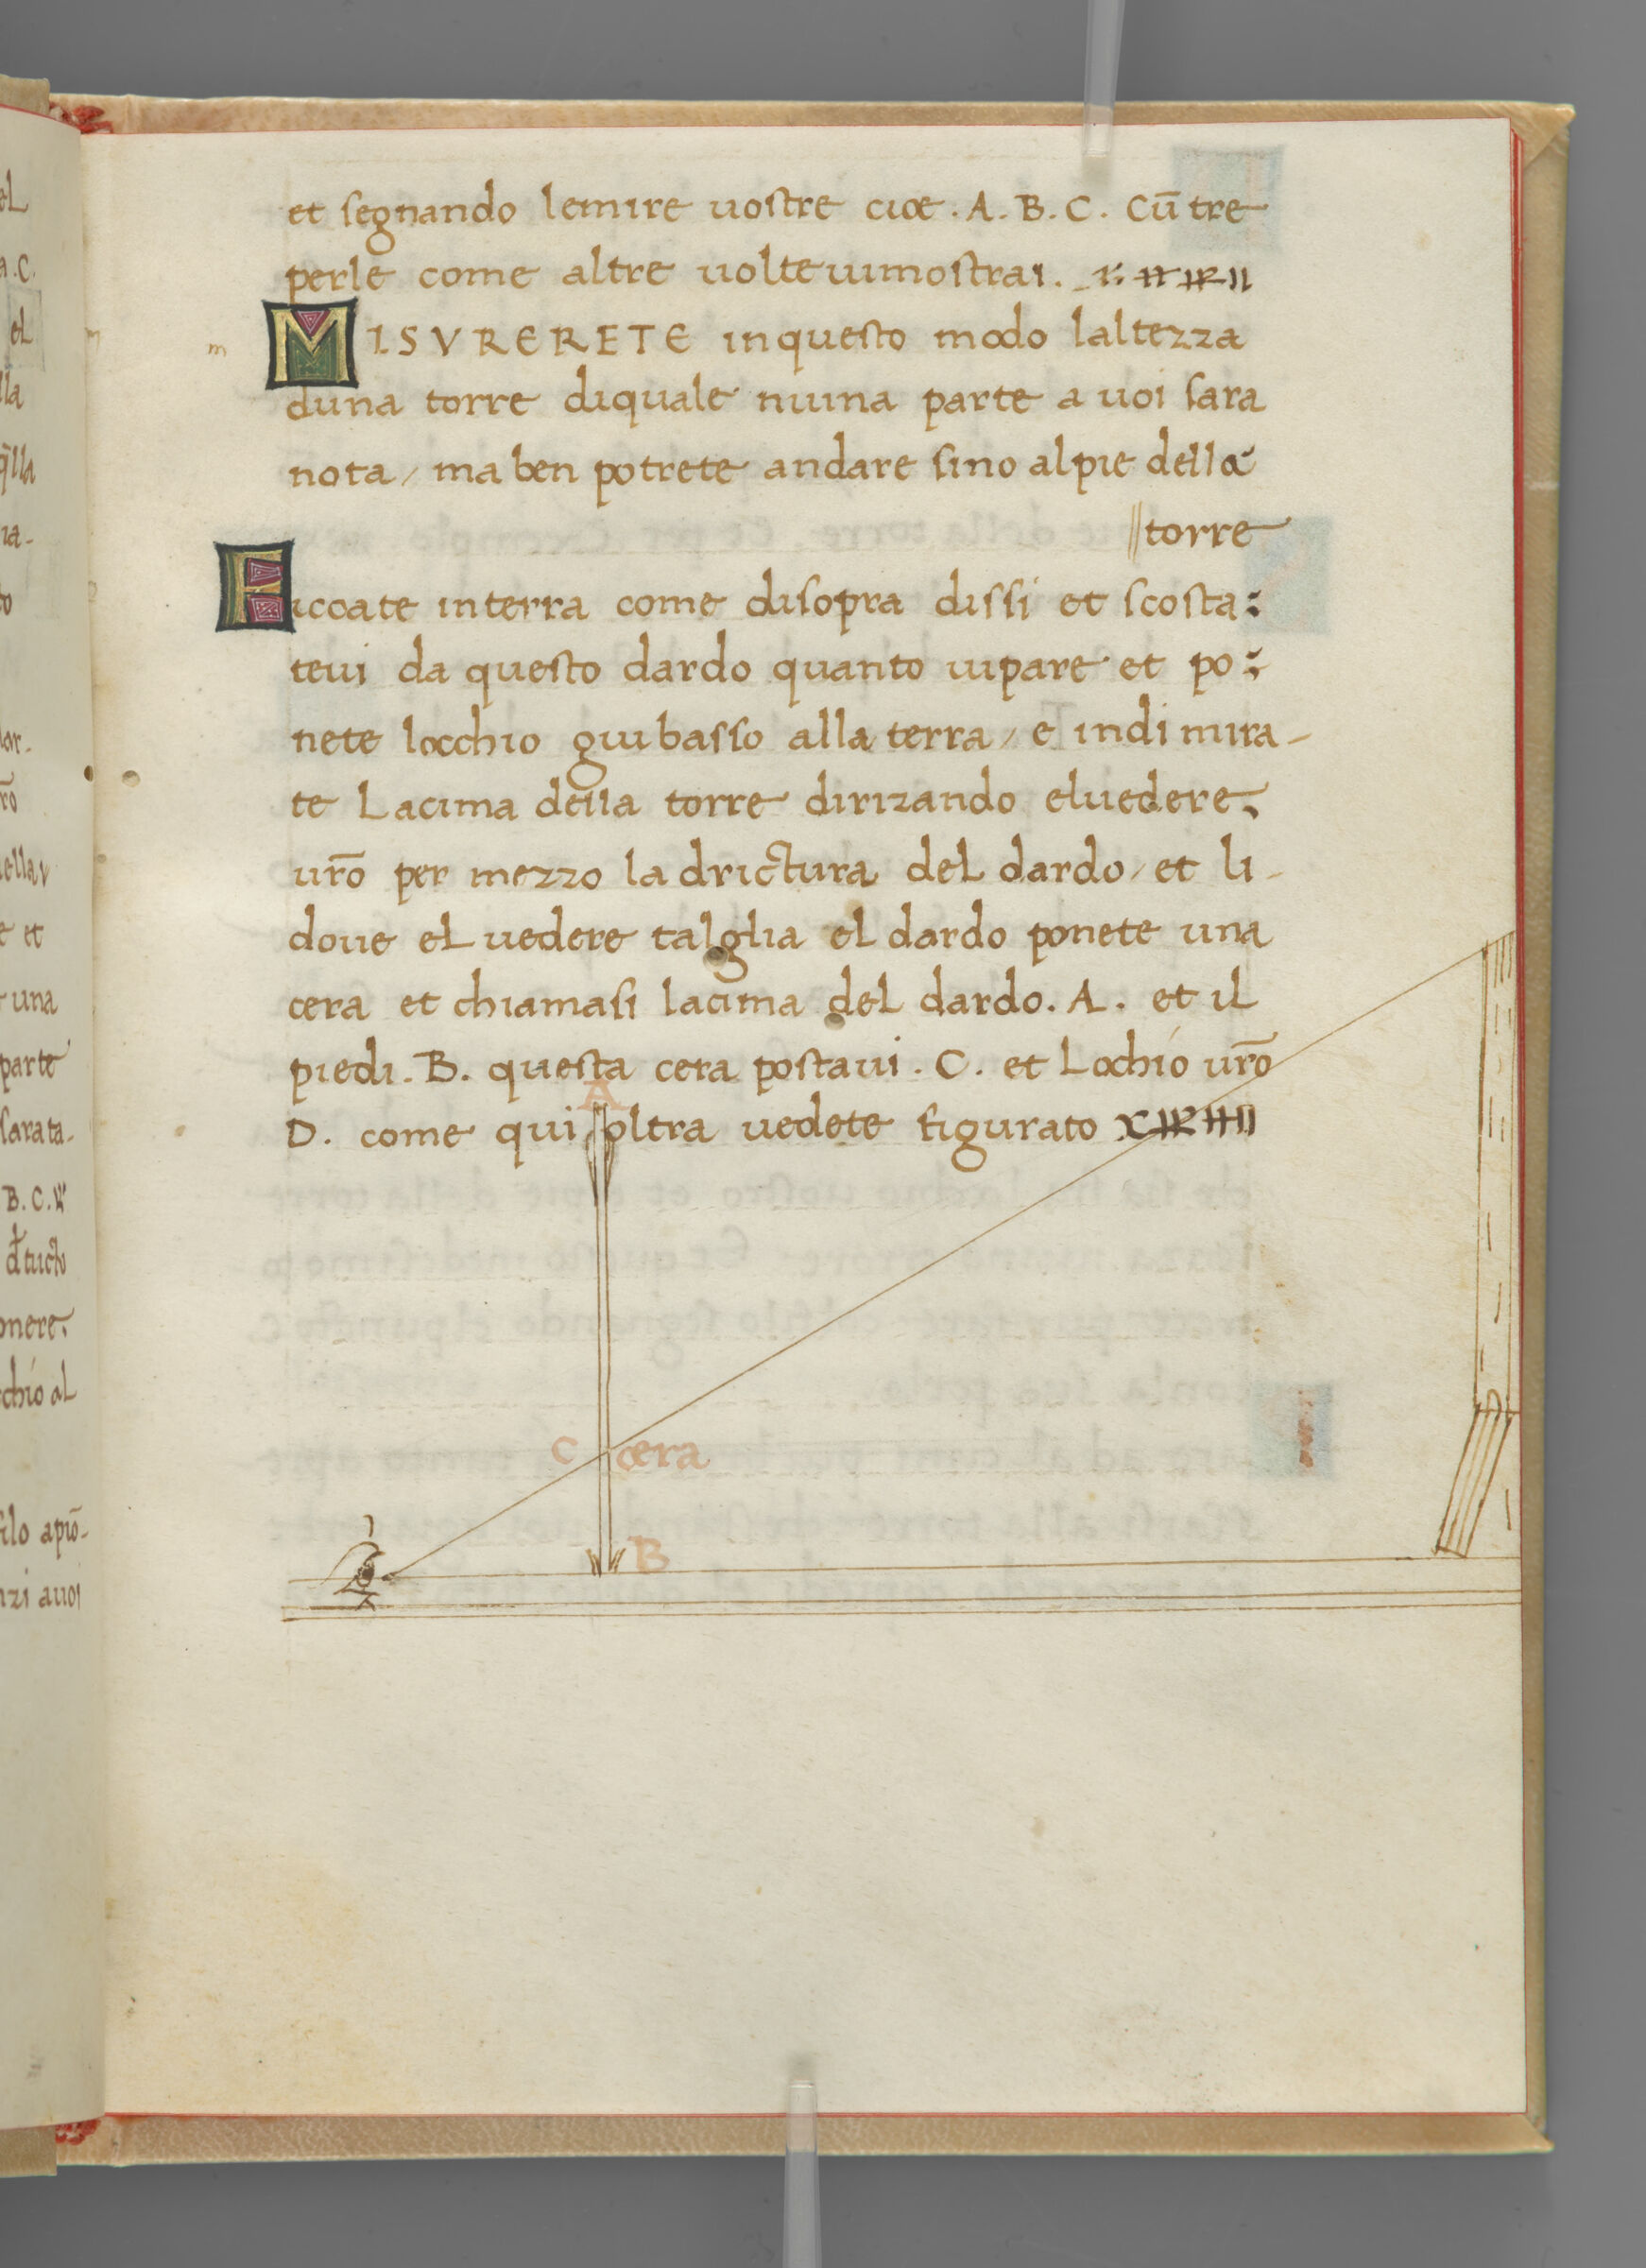 et segnando lemire uostre cioe . A . B . C . Cū tre
perle come altre uolte uimostrai .
m
MISVRERETE inquesto modo laltezza
duna torre diquale niuna parte a uoi sara
nota / ma ben potrete andare sino alpie della
torre
Ficcate interra come disopra dissi et scosta:
teui da questo dardo quanto uipare et po:
nete locchio giu basso alla terra / e indi mira-
te Lacima della torre dirizando eluedere
uro͞ per mezzo la drictura del dardo / et li -
doue el uedere talglia el dardo ponete una
cera et chiamasi lacima del dardo . A . et il
piedi . B . questa cera postaui . C . et Lochio uro͞
D . come qui oltra uedete figurato
A
C cera
B